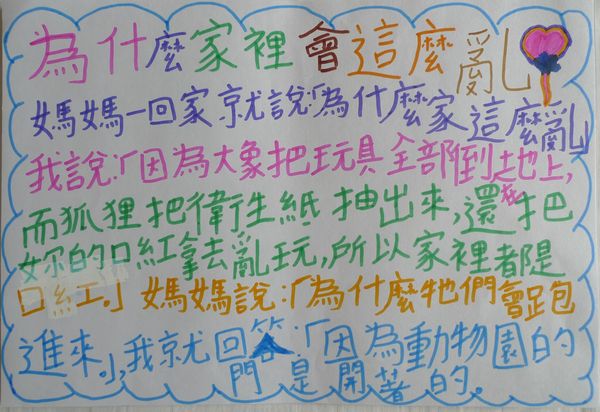 為什麼家裡會這麼亂
媽媽一回家就說:「為什麼家這麼亂
我說:「因為大象把玩具全部倒在地上,
而狐狸把衛生紙抽出來,還我把
妳的口紅拿去亂玩,所以家裡都是
口紅。」媽媽說:「為什麼牠們會跑
進來。」,我就回答:「因為動物園的
門是開著的。